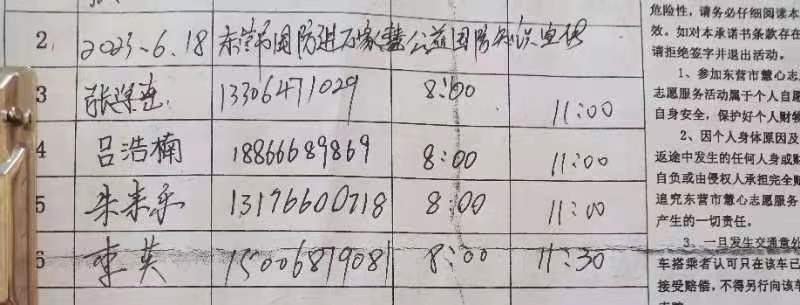 2. 2023.6.18 东营市国防进万家暨公益国防知识宣传
3 张 13306471029 8:00 11:00
4 吕浩楠 18866689869 8:00 11:00
5 朱来乐 13176600718 8:00 11:00
6 李英 15006819081 8:00 11:30
危险性，请务必仔细阅读本
效。如对本承诺书条款存在
请拒绝签字并退出活动。
1、参加东营市慧心志
志愿服务活动属于个人自愿
自身安全，保护好个人财物
2、因个人身体原因及
返途中发生的任何人身或财
自负或由侵权人承担完全赔
追究东营市慧心志愿服务
产生的一切责任。
3、一旦发生交通意外
车搭乘者认可只在该车已
接受赔偿，不得另行向该车